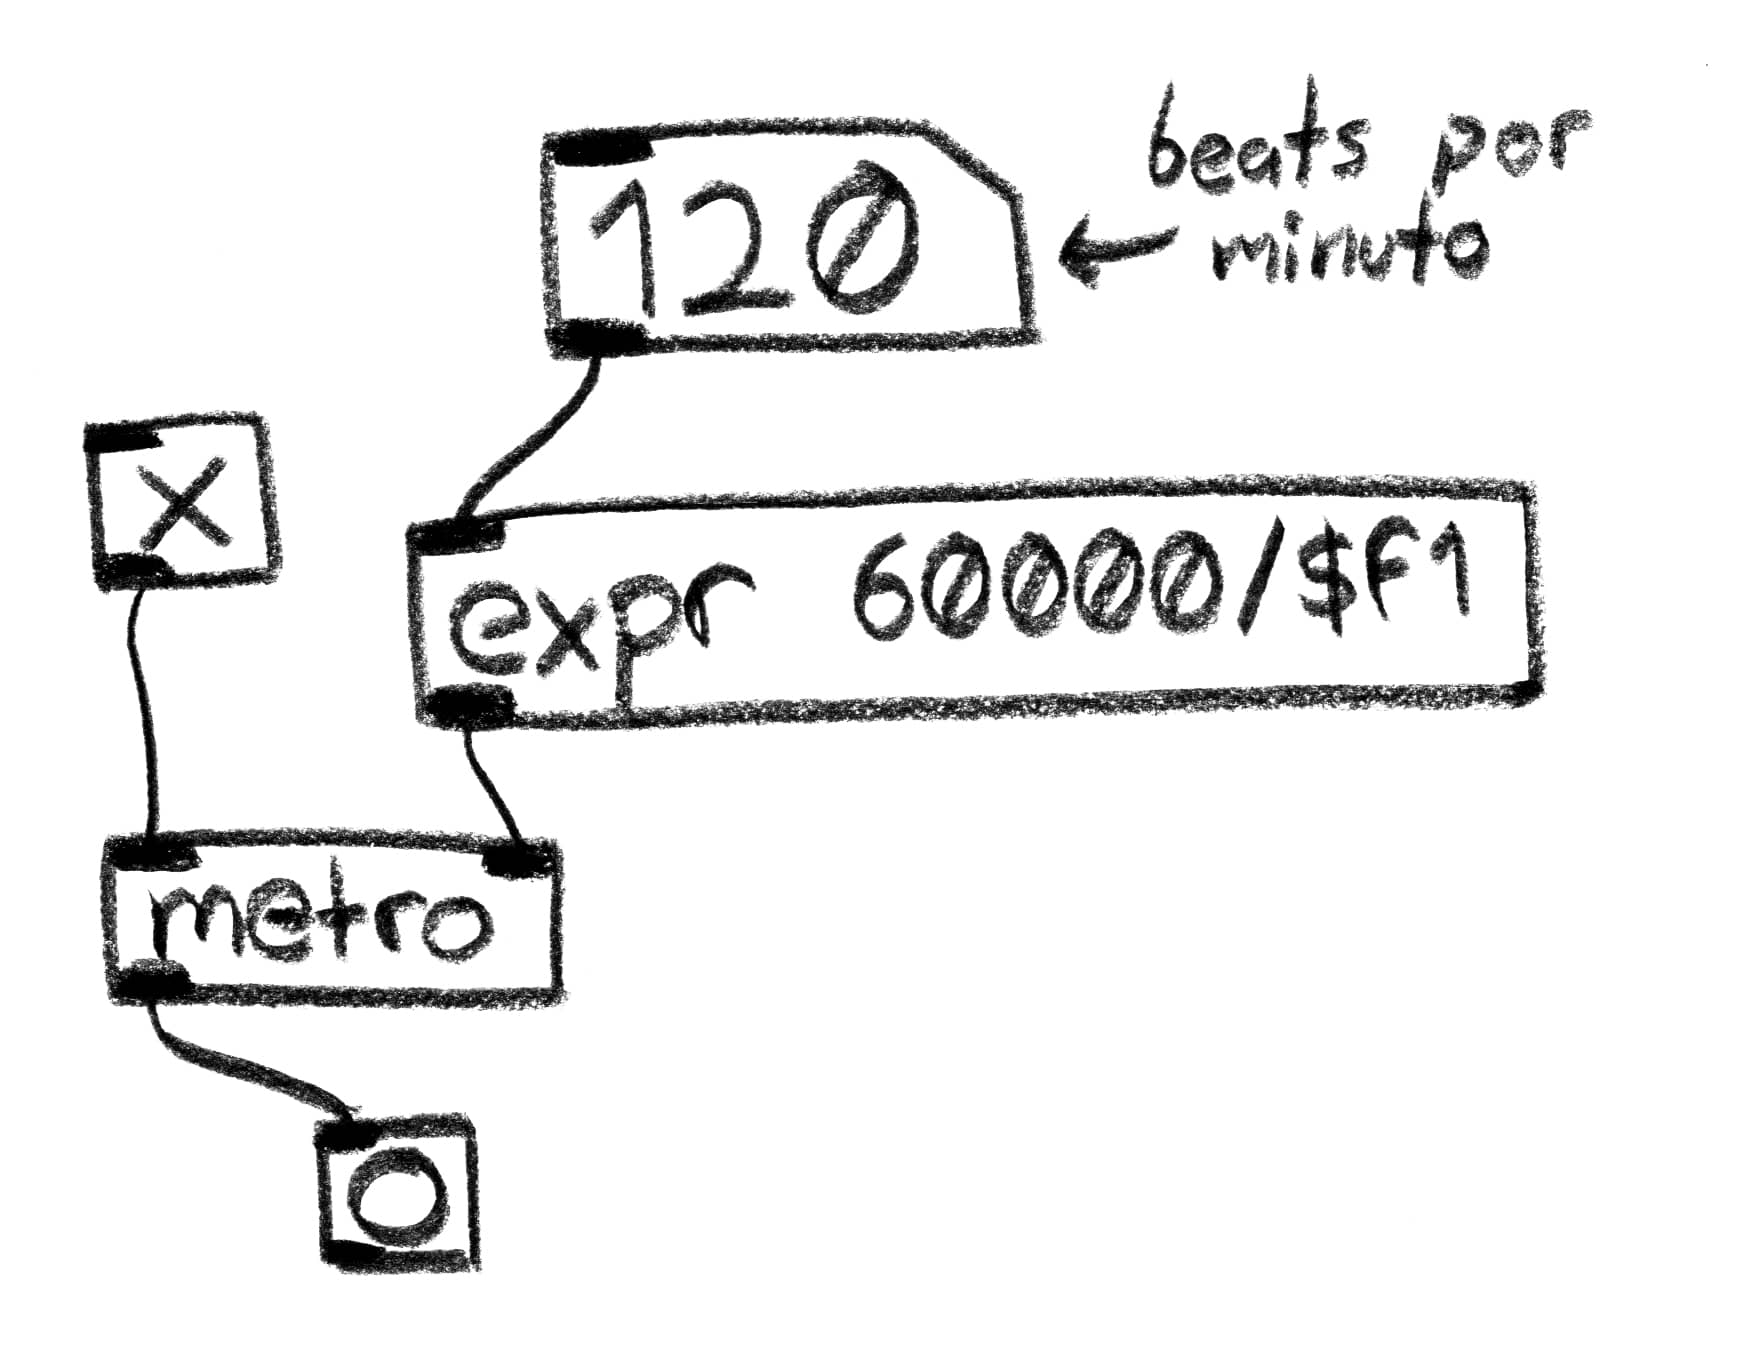 120
beats por
minuto
X
expr 60000/$f1
metro